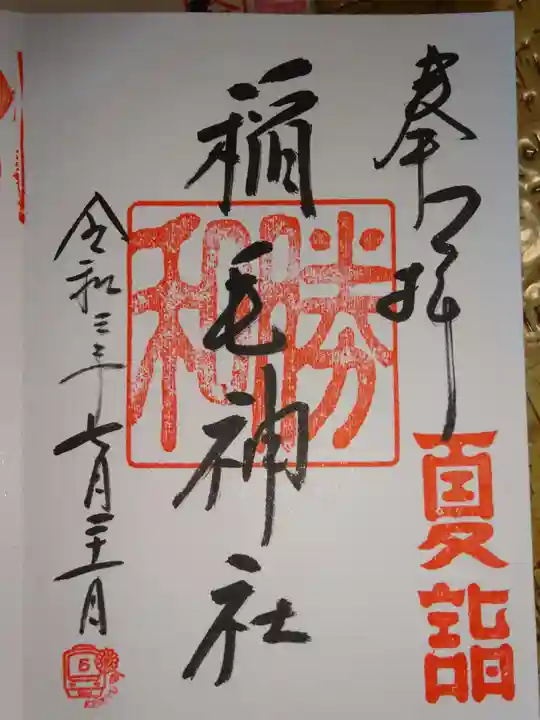 奉拝
夏詣
勝和
稲毛神社
令和三年七月二十一日